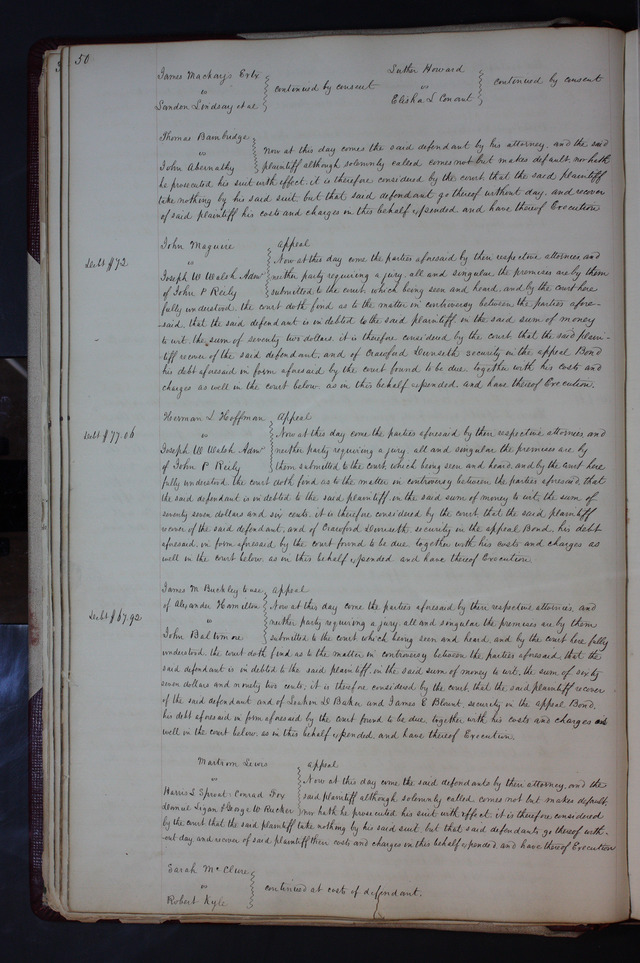 50
James Mackays Extx
vs
Landon Lindsay et al
continued by consent
Luther Howard
vs
Elisha L Conant
continued by consent
Thomas Bambridge
vs
John Abernathy
Now at this day comes the said defendant by his attorney, and the said
plaintiff although solemnly called comes not but makes default, nor hath
he prosecuted his suit with effect, it is therefore considered by the court that the said plaintiff
take nothing by his said suit but that said defendant go thereof without day, and recover
of said plaintiff his costs and charges in this behalf expended and have thereof Execution
Debt $72
John Maguire
vs
Joseph W Walsh Admr
of John P Reily
appeal
Now at this day come the parties aforesaid by their respective attornies and
neither party requiring a jury, all and singular the premises are by them
submitted to the court, which being seen and heard, and by the court here
fully understood, the court doth find as to the matter in controversy between the parties afore-
said, that the said defendant is indebted to the said plaintiff in the said sum of money
to wit, the sum of seventy two dollars, it is therefore considered by the court that the said plain-
tiff recover of the said defendant, and of Crawford Dunseth security in the appeal Bond
his debt aforesaid in form aforesaid by the court found to be due together with his costs and
charges as well in the court below as in this behalf expended and have thereof Execution.
Debt $77.06
Herman L Hoffman
vs
Joseph W Walsh Admr
of John P Reily
Appeal
Now at this day come the parties aforesaid by their respective attornies and
neither party requiring a jury, all and singular the premises are by
them submitted to the court, which being seen and heard, and by the court here
fully understood, the court doth find as to the matter in controversy between the parties aforesaid, that
the said defendant is indebted to the said plaintiff in the said sum of money to wit, the sum of
seventy seven dollars and six cents, it is therefore considered by the court that the said plaintiff
recover of the said defendant, and of Crawford Dunseth, security in the appeal Bond, his debt
aforesaid, in form aforesaid by the court found to be due together with his costs and charges as
well in the court below as in this behalf expended and have thereof Execution
Debt $67.92
James M Buckley to use
of Alexander Hamilton
vs
John Baltimore
appeal
Now at this day come the parties aforesaid by their respective attornies, and
neither party requiring a jury, all and singular the premises are by them
submitted to the court which being seen and heard, and by the court here fully
understood, the court doth find as to the matter in controversy between the parties aforesaid, that the
said defendant is indebted to the said plaintiff in the said sum of money to wit, the sum of sixty
seven dollars and ninety two cents, it is therefore considered by the court that the said plaintiff recover
of the said defendant and of D Baker and James E Blount, security in the appeal Bond,
his debt aforesaid in form aforesaid by the court found to be due, together with his costs and charges as
well in the court below, as in this behalf expended and have thereof Execution.
Martrom Lewis
vs
Harris L Sprout, Conrad Fox
Lemuel Ligan & George W Rucker
appeal
Now at this day come the said defendants by their attorney, and the
said plaintiff although solemnly called comes not but makes default,
nor hath he prosecuted his suit with effect it is therefore considered
by the court that the said plaintiff take nothing by his said suit, but that said defendants go thereof with-
out day and recover of said plaintiff their costs and charges in this behalf expended, and have thereof Execution
Sarah McClure
vs
Robert Kyle
continued at costs of defendant.